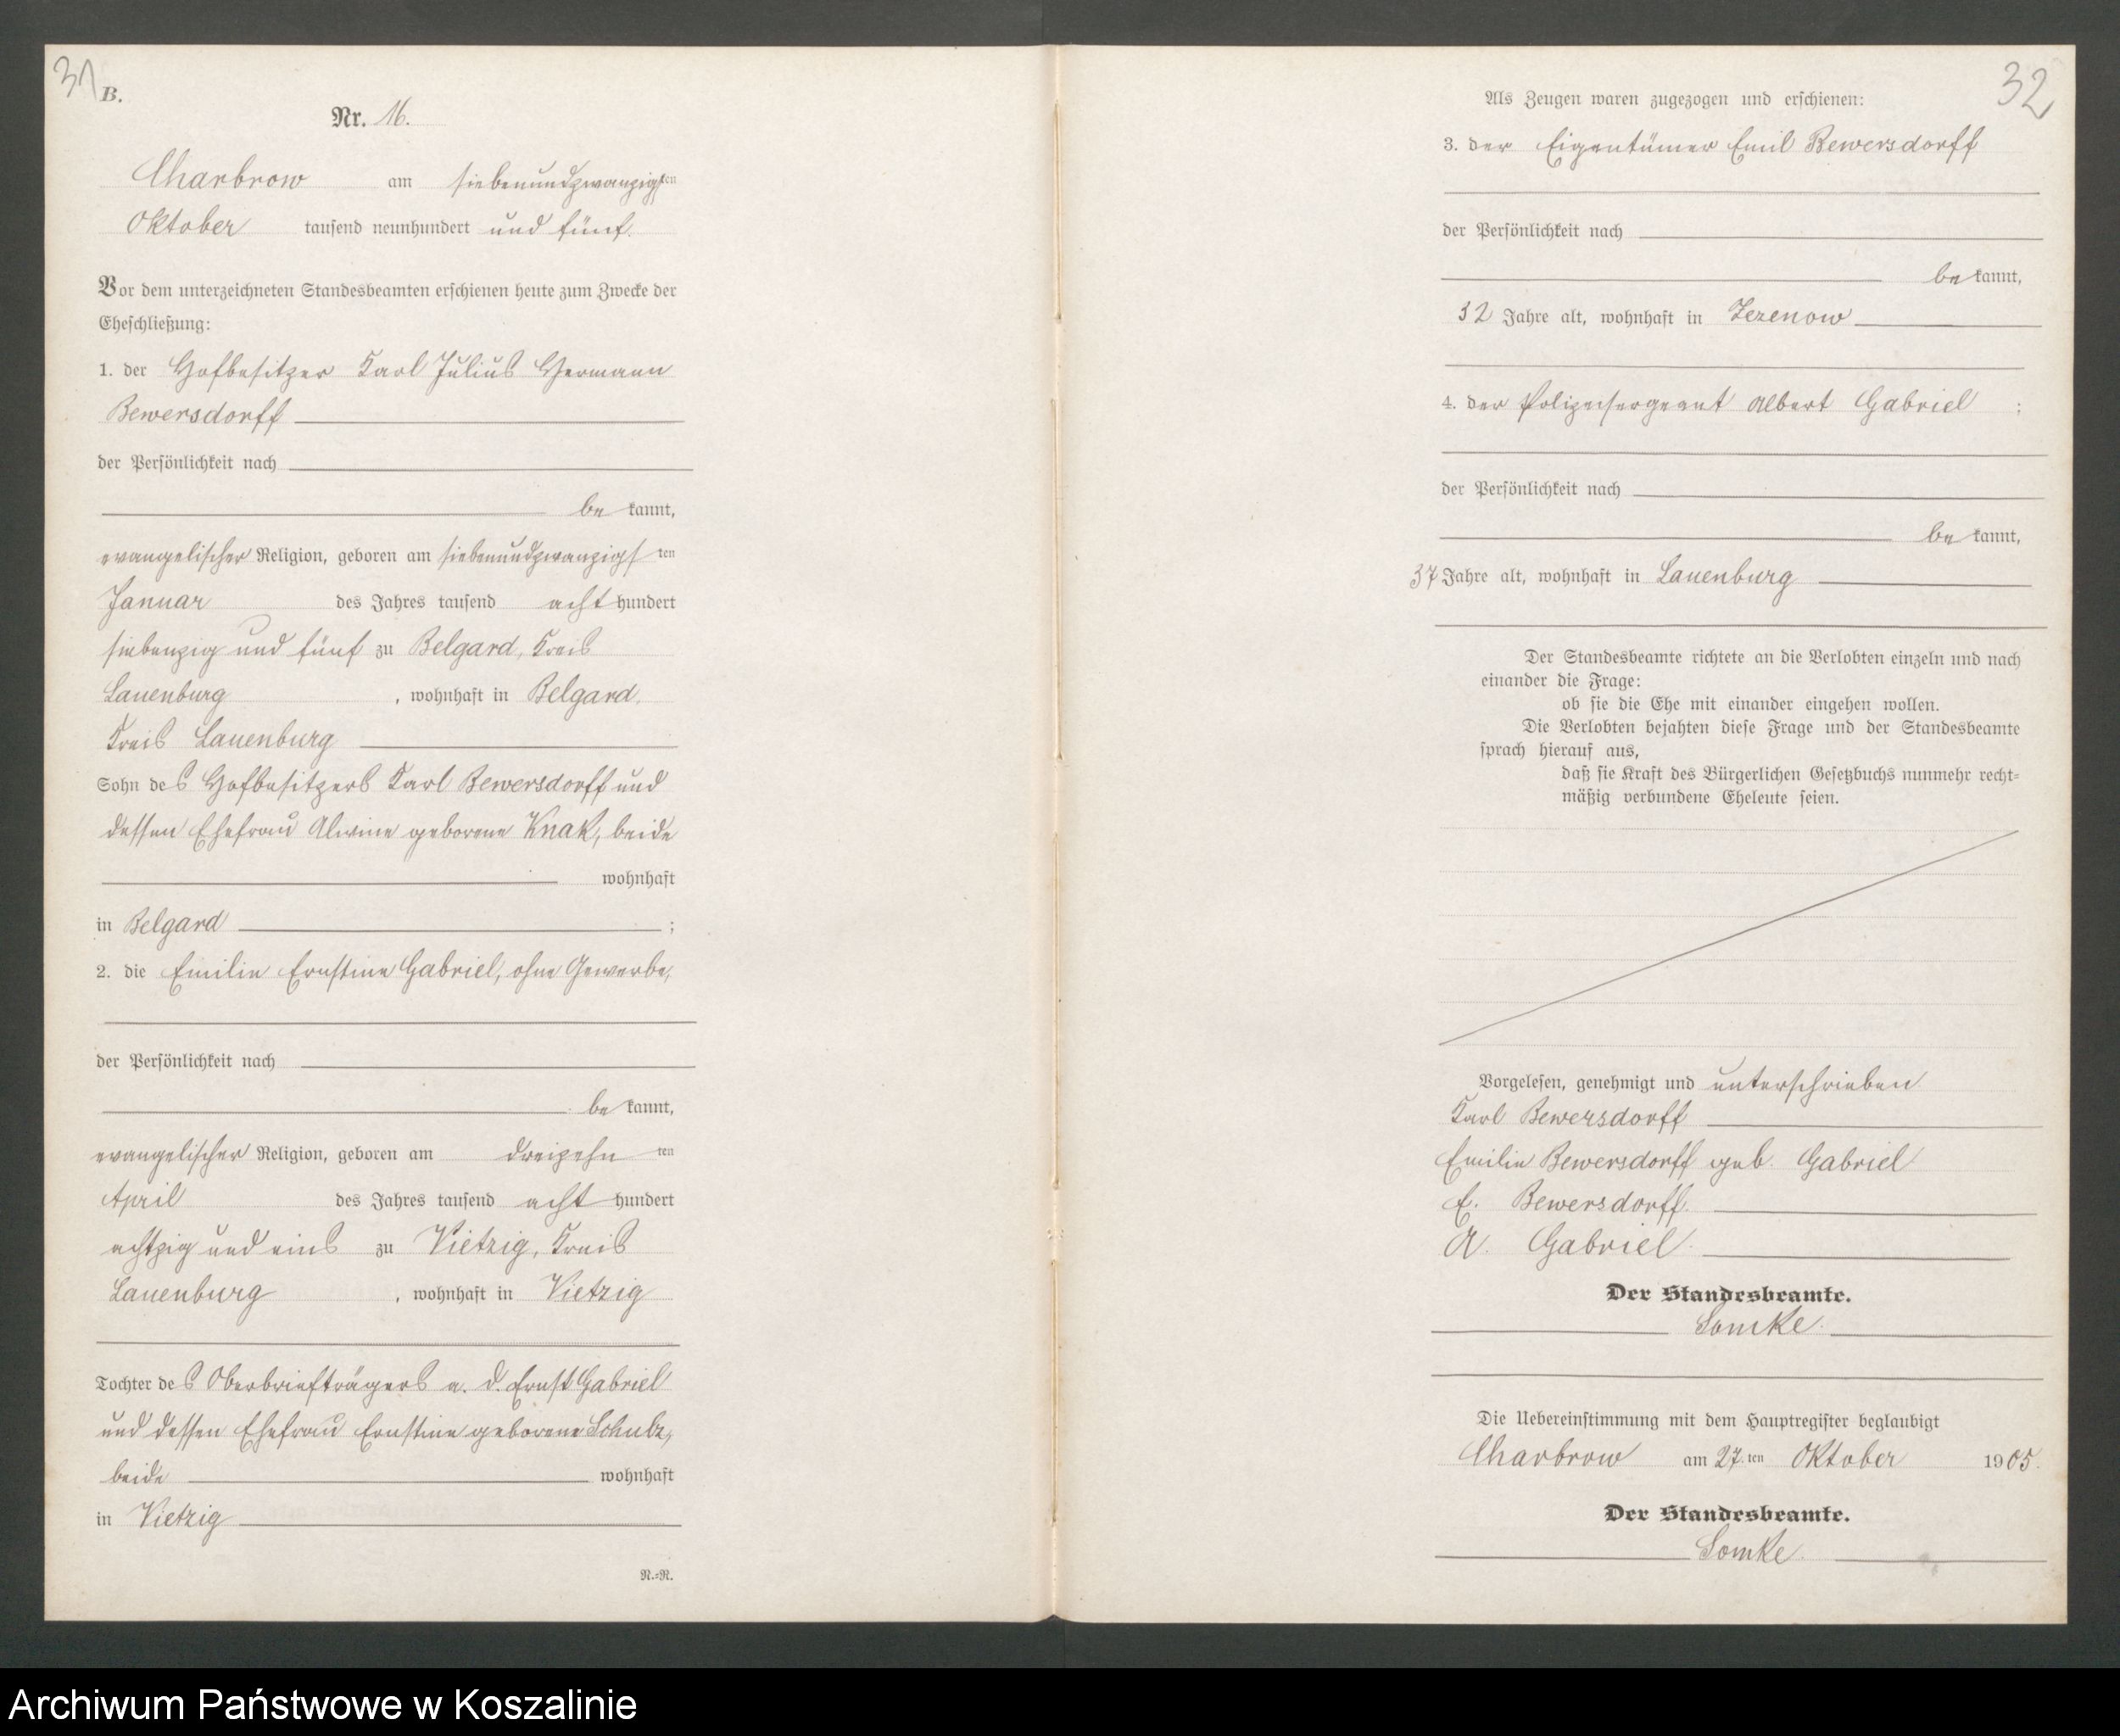 31
B.
Nr. 16.
Charbrow am siebenundzwanzigsten
Oktober tausend neunhundert und fünf.
Vor dem unterzeichneten Standesbeamten erschienen heute zum Zwecke der
Eheschließung:
1. der Hofbesitzer Karl Julius Hermann
Bewersdorff
der Persönlichkeit nach
bekannt,
evangelischer Religion, geboren am siebenundzwanzigsten
Januar des Jahres tausend achthundert
siebenzig und fünf zu Belgard, Kreis
Lauenburg, wohnhaft in Belgard,
Kreis Lauenburg
Sohn des Hofbesitzers Karl Bewersdorff und
dessen Ehefrau Alwine geborene Knak, beide
wohnhaft
in Belgard ;
2. die Emilie Ernstine Gabriel, ohne Gewerbe,
der Persönlichkeit nach
bekannt,
evangelischer Religion, geboren am dreizehnten
April des Jahres tausend achthundert
achtzig und eins zu Vietzig, Kreis
Lauenburg, wohnhaft in Vietzig
Tochter des Oberbriefträgers a. d. Ernst Gabriel
und dessen Ehefrau Ernstine geborene Schulz,
beide wohnhaft
in Vietzig
N.=N.
32
Als Zeugen waren zugezogen und erschienen:
3. der Eigentümer Emil Bewersdorff
der Persönlichkeit nach
bekannt,
32 Jahre alt, wohnhaft in Zezenow
4. der Polizeisergeant Albert Gabriel ;
der Persönlichkeit nach
bekannt,
37 Jahre alt, wohnhaft in Lauenburg
Der Standesbeamte richtete an die Verlobten einzeln und nach
einander die Frage:
ob sie die Ehe mit einander eingehen wollen.
Die Verlobten bejahten diese Frage und der Standesbeamte
sprach hierauf aus,
daß sie Kraft des Bürgerlichen Gesetzbuchs nunmehr recht=
mäßig verbundene Eheleute seien.
Vorgelesen, genehmigt und unterschrieben
Karl Bewersdorff
Emilie Bewersdorff geb. Gabriel
E. Bewersdorff.
A. Gabriel.
Der Standesbeamte.
Die Uebereinstimmung mit dem Hauptregister beglaubigt
Charbrow am 27.ten Oktober 1905.
Der Standesbeamte.
Archiwum Państwowe w Koszalinie